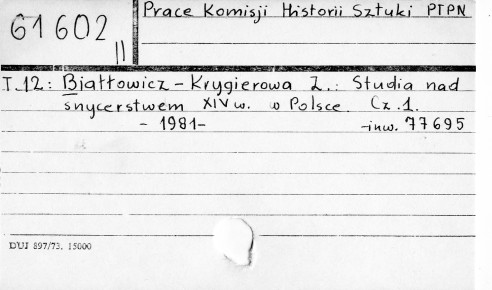 61602
II
Prace Komisji Historii Sztuki PTPN
T.12: Białłowicz-Krygierowa Z.: Studia nad
snycerstwem XIV w. w Polsce. Cz.1.
- 1981-
-inw. 77695
DUJ 897/73. 15000